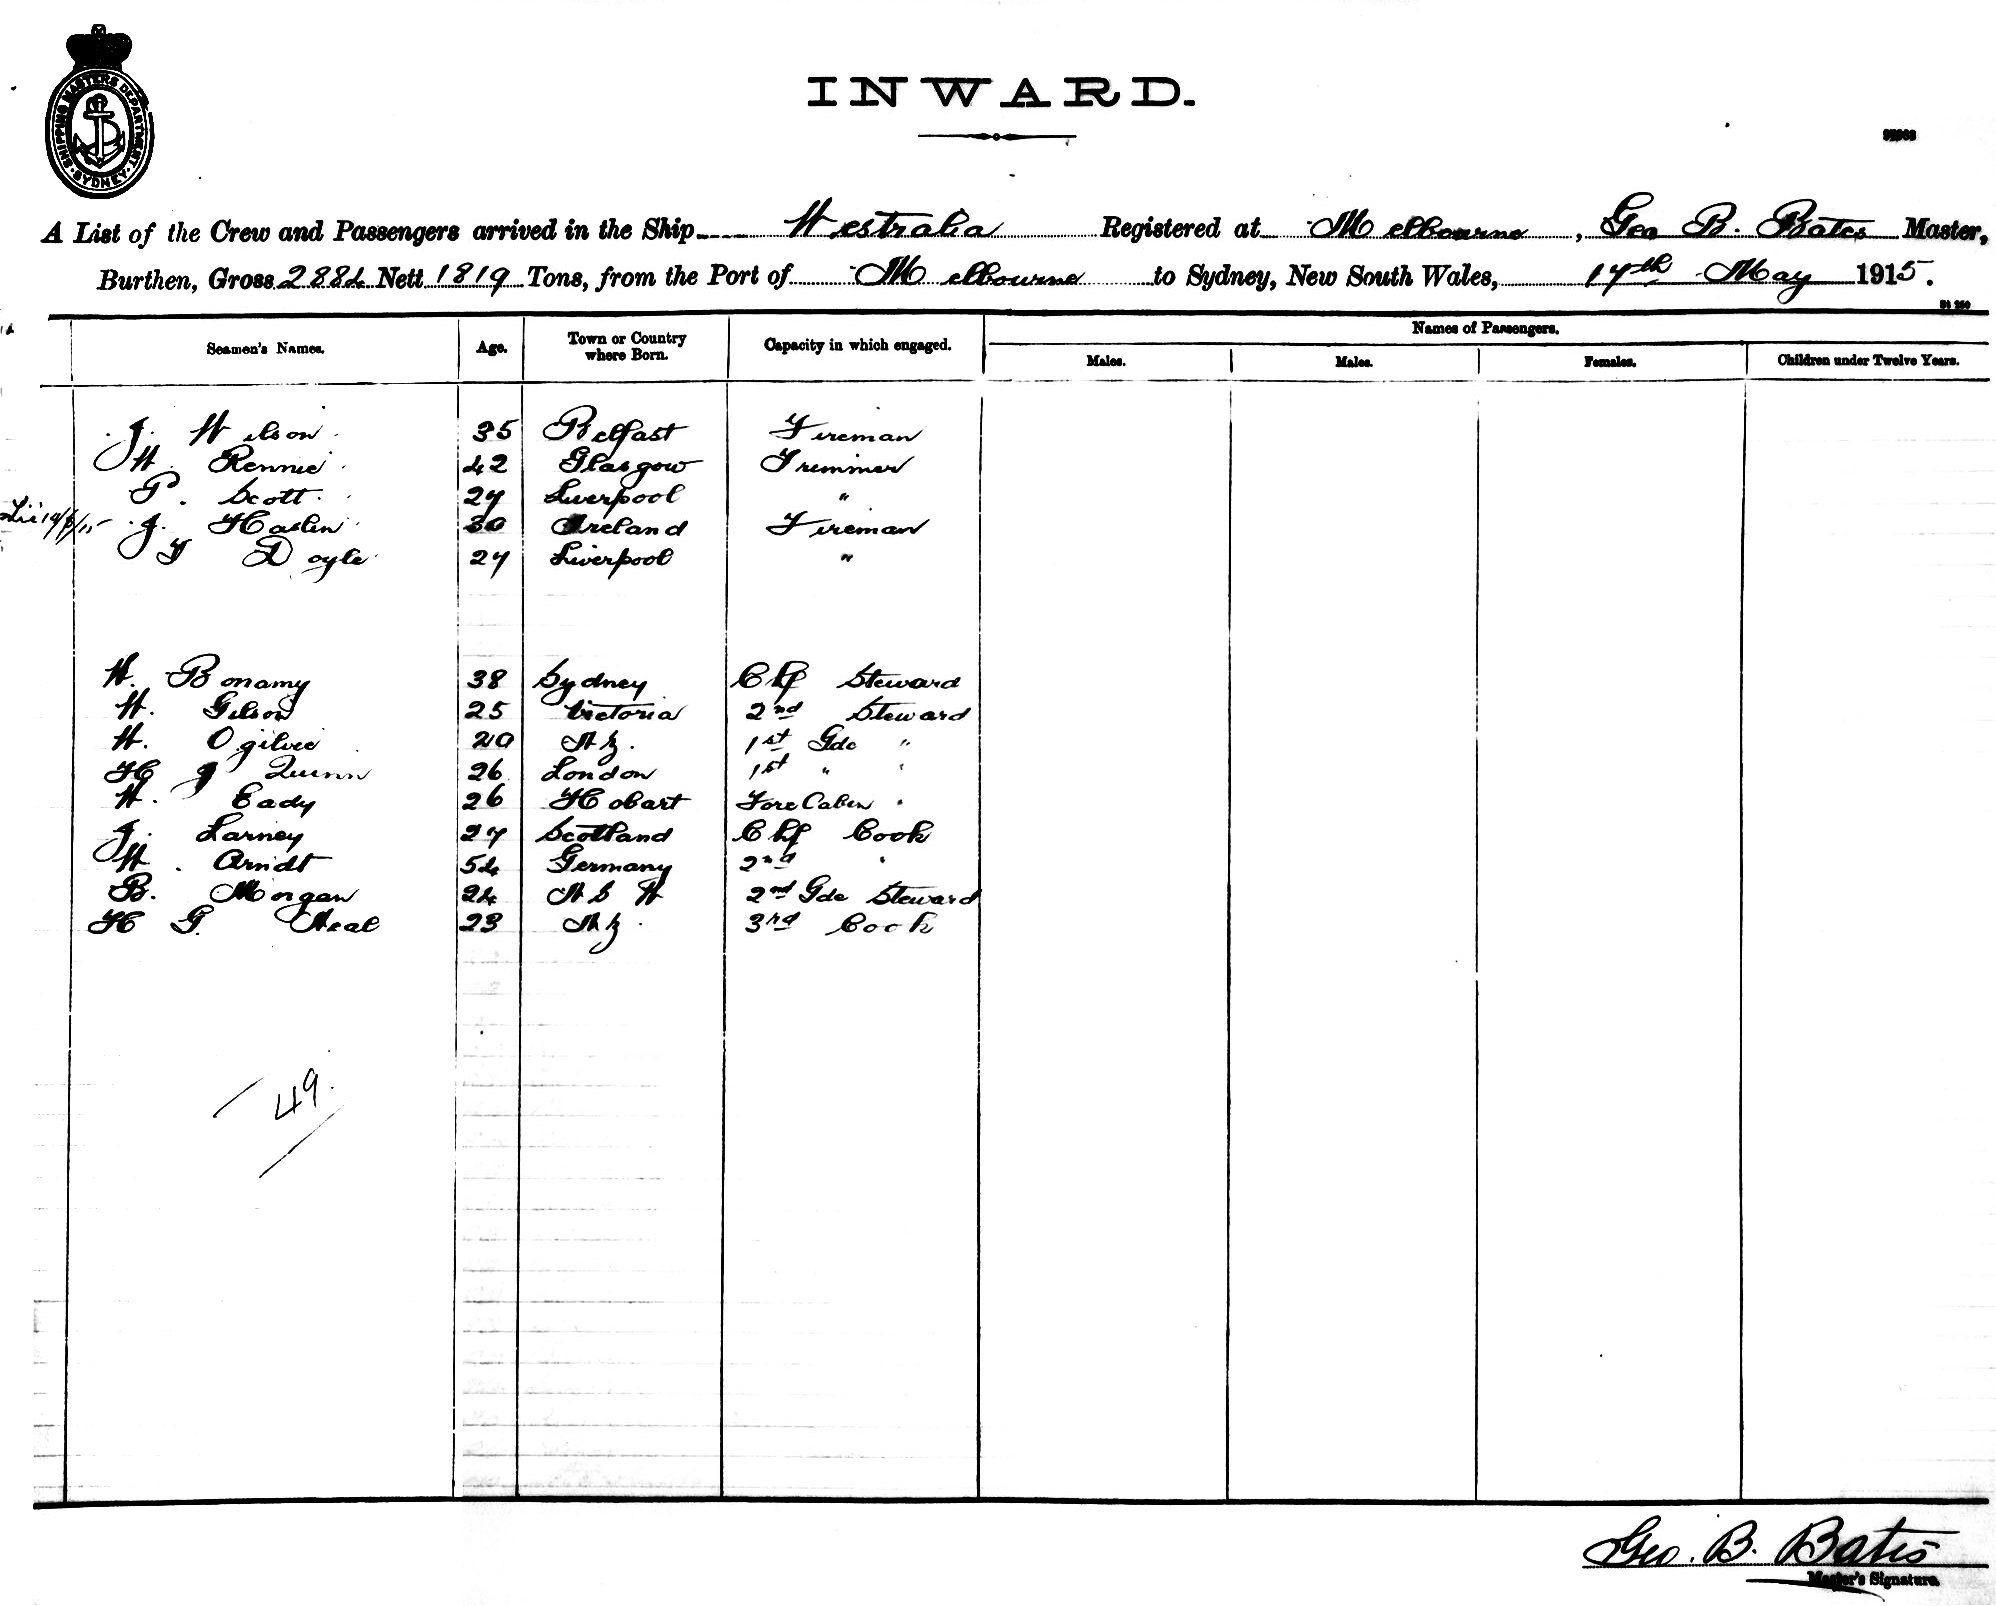 SHIPPING MASTERS DEPARTMENT SYDNEY
INWARD.
A List of the Crew and Passengers arrived in the Ship Westralia Registered at Melbourne, Geo B. Bates Master,
Burthen, Gross 2884 Nett 1819 Tons, from the Port of Melbourne to Sydney, New South Wales, 17th May 1915.
Names of Passengers.
Seamen's Names. Age. Town or Country where Born. Capacity in which engaged. Males. Males. Females. Children under Twelve Years.
J. Wilson 35 Belfast Fireman
W. Rennie 42 Glasgow Trimmer
P. Scott 27 Liverpool "
J. Haslin 30 Ireland Fireman
T Doyle 27 Liverpool "
W. Bonamy 38 Sydney Chf Steward
W. Gilson 25 Victoria 2nd Steward
W. Ogilvie 20 N Z. 1st Gde "
H J Quinn 26 London 1st " "
W. Eady 26 Hobart Fore Cabin "
J. Larney 27 Scotland Chf Cook
W. Arndt 54 Germany 2nd "
B. Morgan 24 N S W 2nd Gde Steward
H G. Neal 23 N Z. 3rd Cook
49.
Geo. B. Bates
Master's Signature.